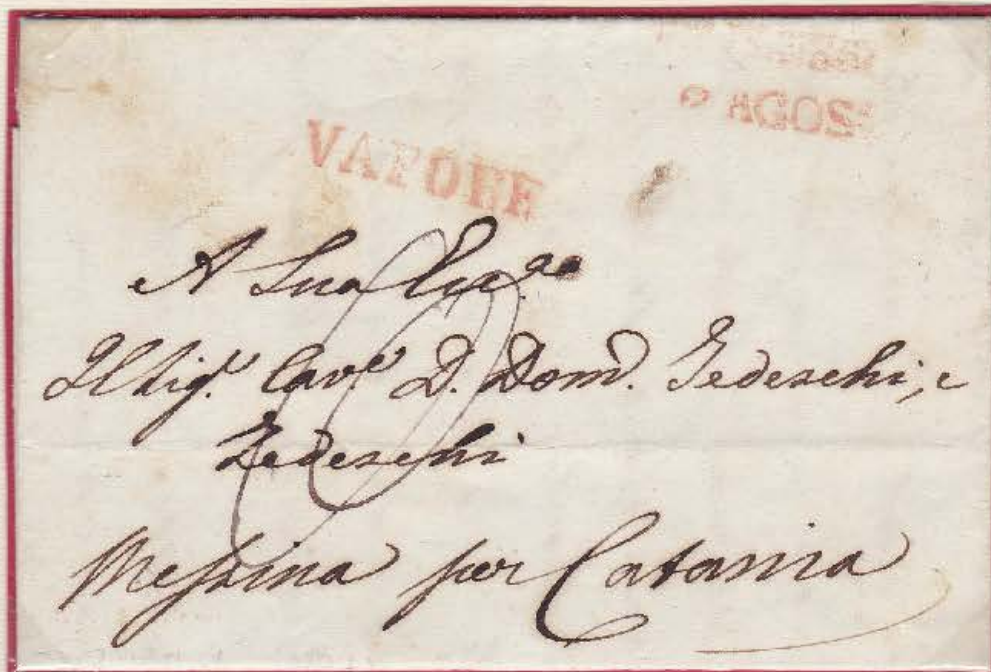 AGOS
VAPORE
A Sua Ecc.za
Il Sig.r Cav.e D. Dom.o Tedeschi, e
Tedeschi
Messina per Catania